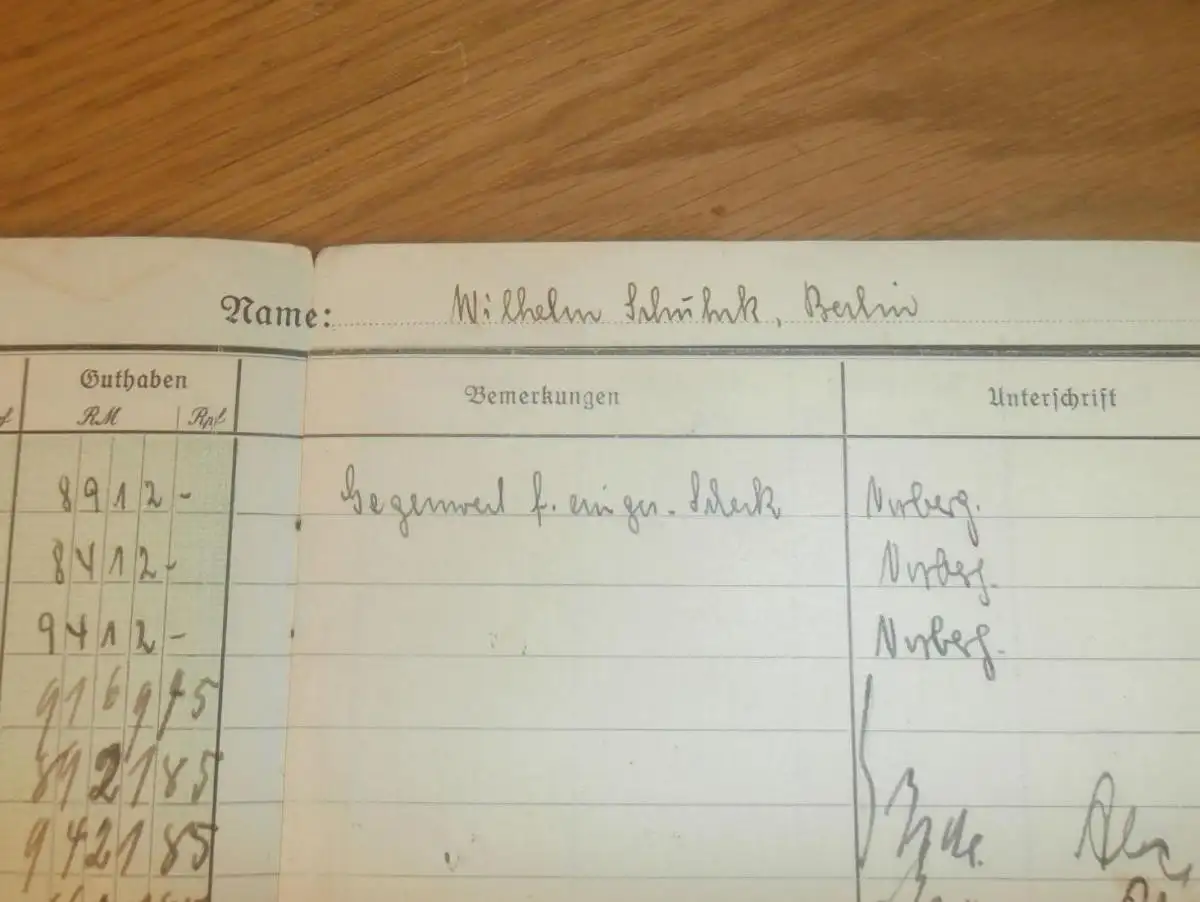 Name: Wilhelm Schuhrk, Berlin
Guthaben Bemerkungen Unterschrift
RM Rpf
8912 - Gegenwert f. einger. Scheck Norberg.
8412 - Norberg.
9412 - Norberg.
9169 75
8921 85
9421 85